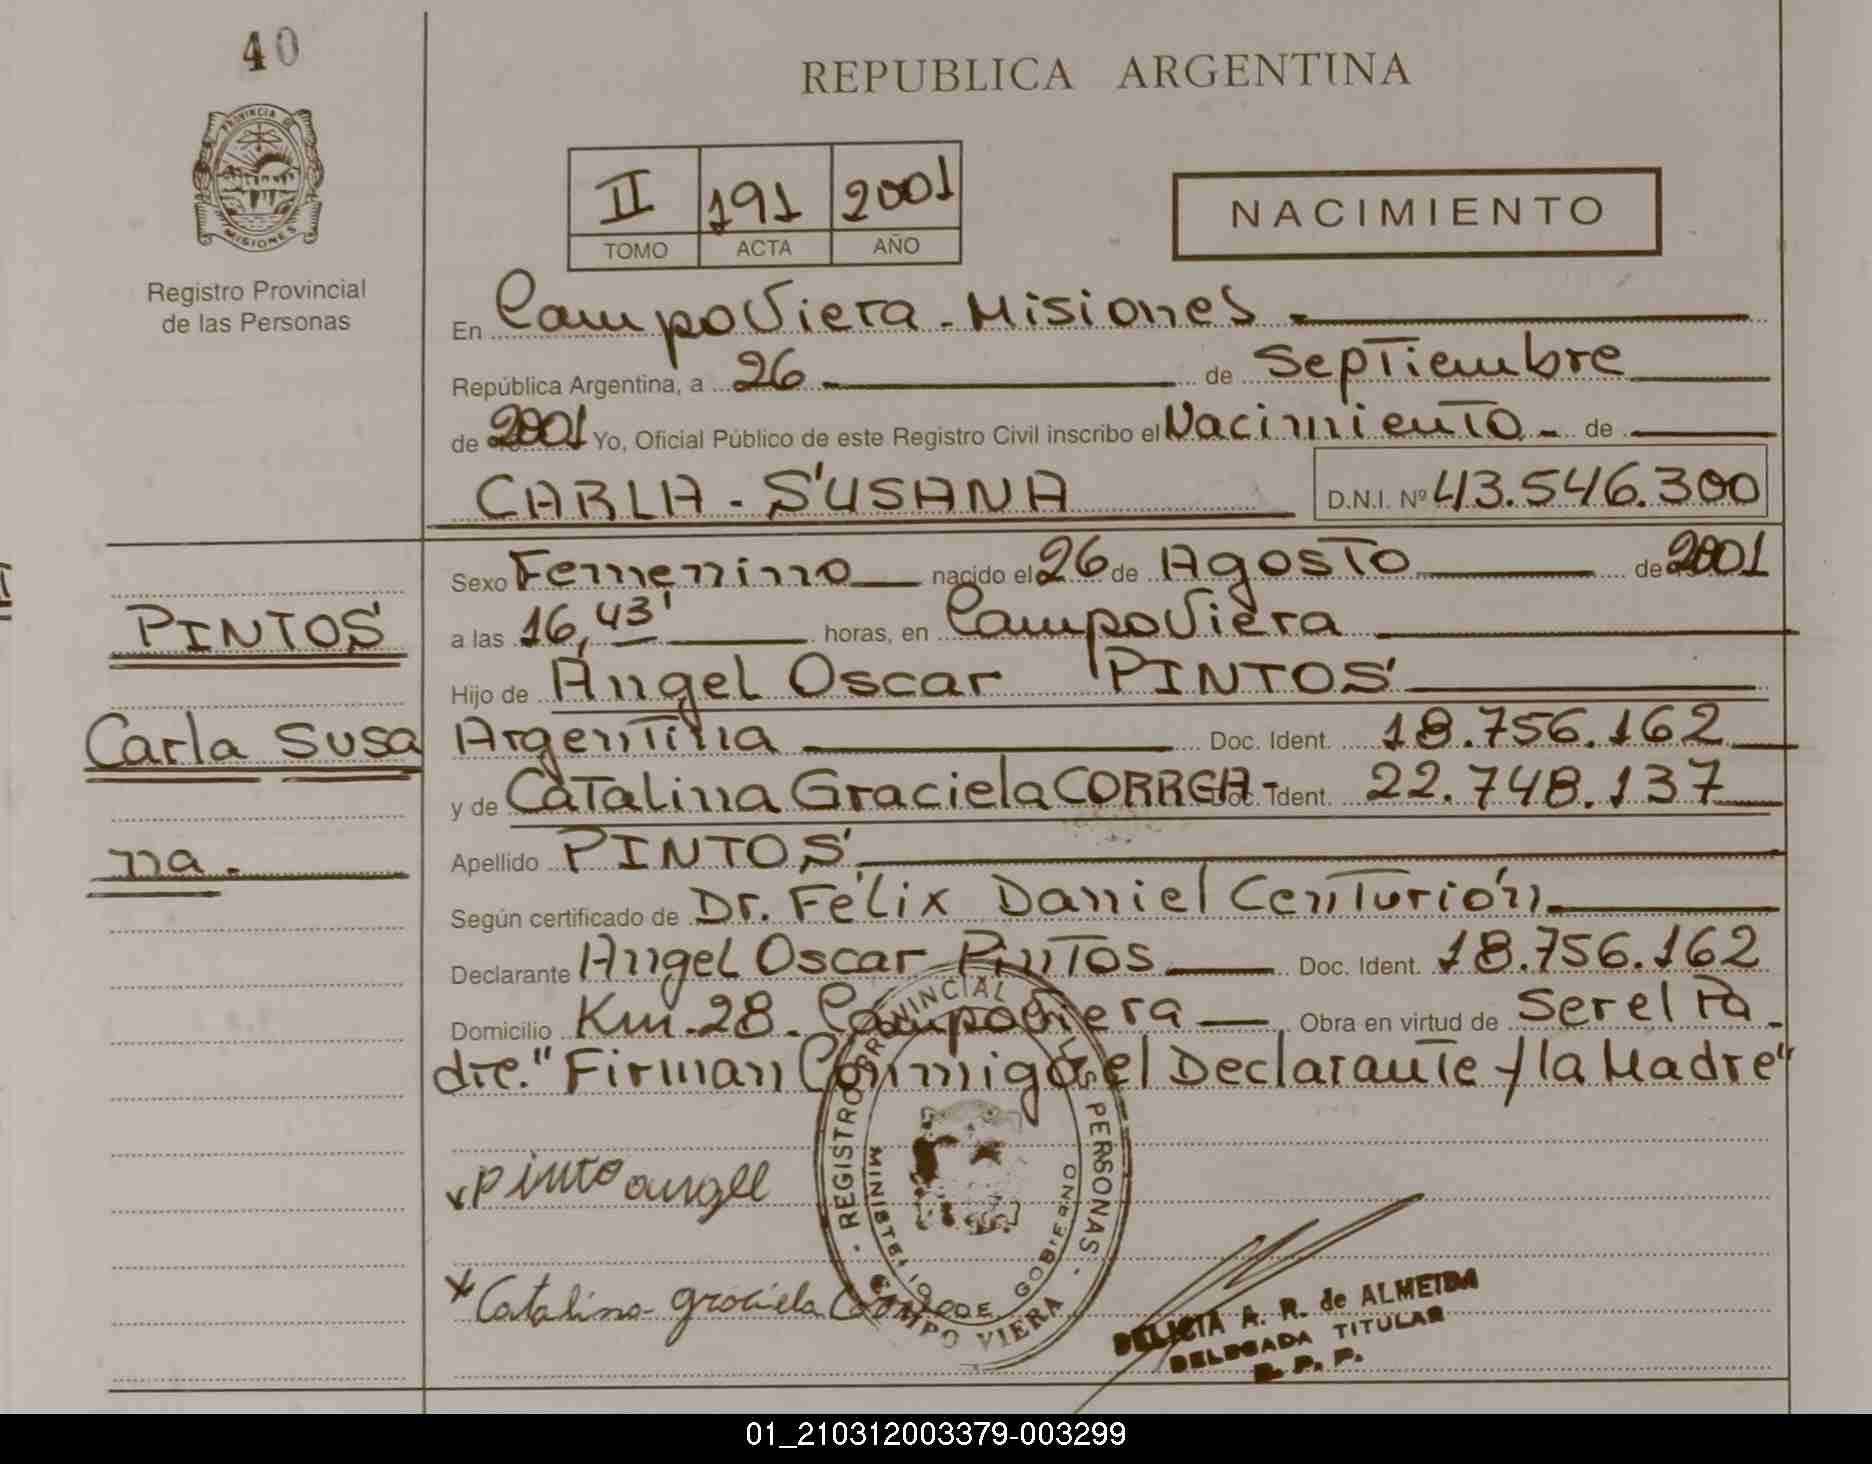 40
REPUBLICA ARGENTINA
PROVINCIA DE
MISIONES
Registro Provincial
de las Personas
II 191 2001
TOMO ACTA AÑO
NACIMIENTO
En Campo Viera - Misiones -
República Argentina, a 26 de Septiembre
de 2001 Yo, Oficial Público de este Registro Civil inscribo el Nacimiento - de
CARLA - SUSANA D.N.I. Nº 43.546.300
Sexo Femenino nacido el 26 de Agosto de 2001
a las 16,43' horas, en Campo Viera
Hijo de Angel Oscar PINTOS
Argentina Doc. Ident. 18.756.162
y de Catalina Graciela CORREA - Doc. Ident. 22.748.137
Apellido PINTOS
Según certificado de Dr. Félix Daniel Centurión
Declarante Angel Oscar Pintos Doc. Ident. 18.756.162
Domicilio Km. 28. Campo Viera Obra en virtud de Ser el Pa
dre. "Firman Conmigo el Declarante y la Madre"
PINTOS
Carla Susa
na.
pinto angel
Catalina graciela
REGISTRO PROVINCIAL DE LAS PERSONAS
MINISTERIO DE GOBIERNO
CAMPO VIERA
DELICIA A. R. de ALMEIDA
DELEGADA TITULAR
R. P. P.
01_210312003379-003299